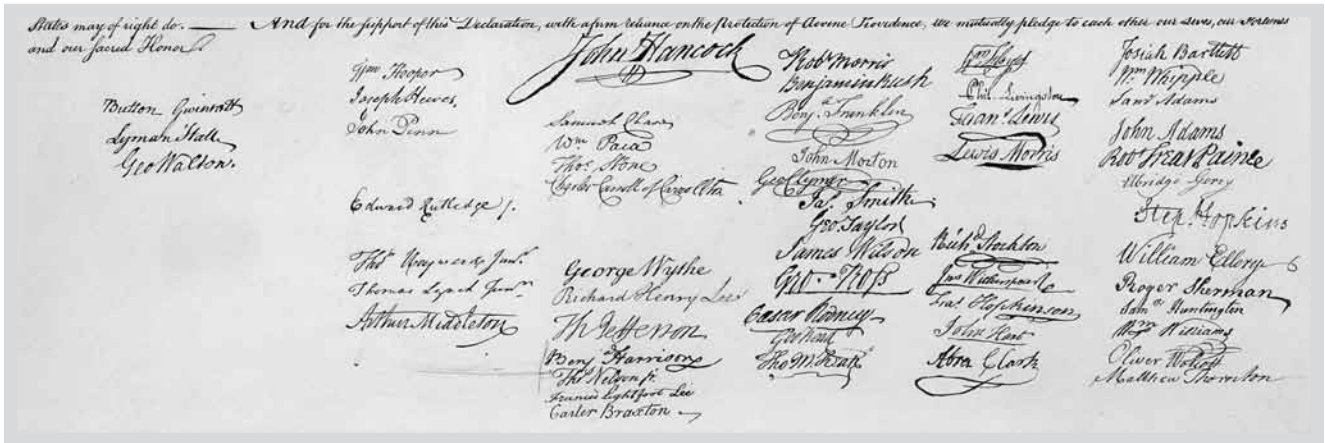 States may of right do. —— And for the support of this Declaration, with a firm reliance on the Protection of divine Providence, we mutually pledge to each other our Lives, our Fortunes
and our sacred Honor
Button Gwinnett
Lyman Hall
Geo Walton.
Wm Hooper
Joseph Hewes,
John Penn
Edward Rutledge /.
Thos Heyward Junr.
Thomas Lynch Junr.
Arthur Middleton
John Hancock
Samuel Chase
Wm Paca
Thos Stone
Charles Carroll of Carrollton
George Wythe
Richard Henry Lee
Th Jefferson
Benja Harrison
Thos Nelson jr.
Francis Lightfoot Lee
Carter Braxton
Robt Morris
Benjamin Rush
Benja. Franklin
John Morton
Geo Clymer
Jas. Smith
Geo. Taylor
James Wilson
Geo. Ross
Caesar Rodney
Geo Read
Tho M:Kean
Wm Floyd
Phil. Livingston
Frans. Lewis
Lewis Morris
Richd Stockton
Jno Witherspoon
Fras. Hopkinson
John Hart
Abra Clark
Josiah Bartlett
Wm Whipple
Saml Adams
John Adams
Robt Treat Paine
Elbridge Gerry
Step. Hopkins
William Ellery
Roger Sherman
Saml Huntington
Wm Williams
Oliver Wolcott
Matthew Thornton